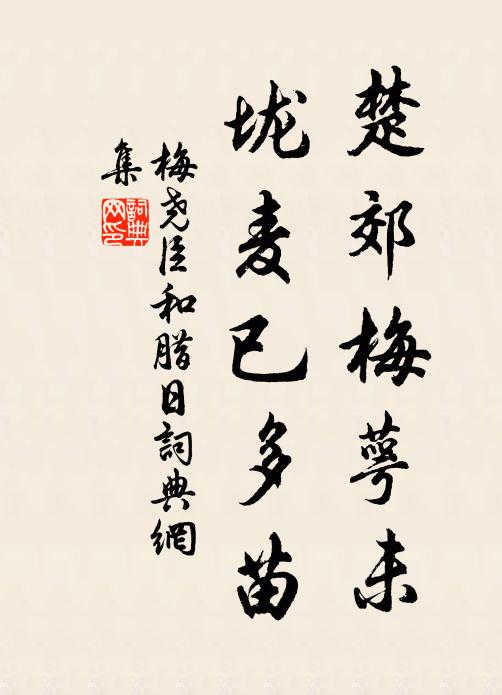 楚郊梅萼未
垅麦已多苗
梅尧臣和腊日詞典網
集
詞典
网印